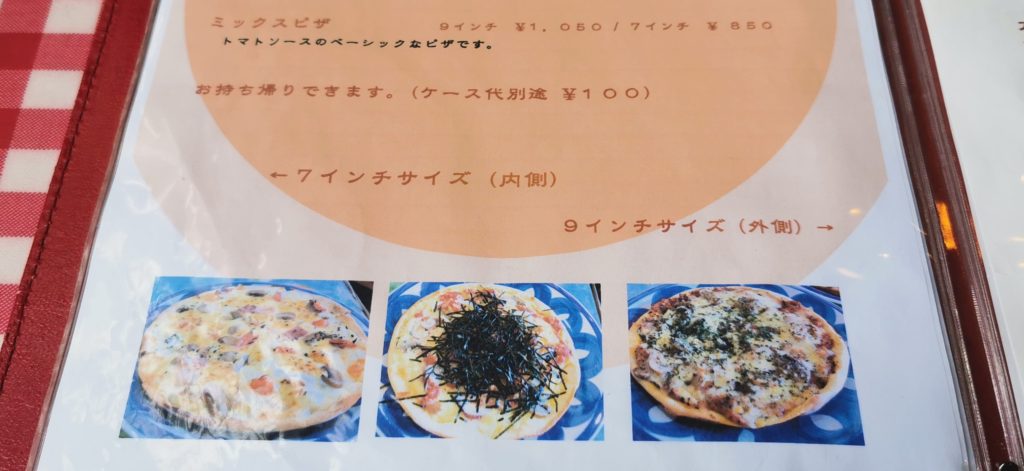 ミックスピザ　9インチ ¥1，050 / 7インチ ¥ 850
トマトソースのベーシックなピザです。
お持ち帰りできます。（ケース代別途 ¥100）
←7インチサイズ（内側）
9インチサイズ（外側）→